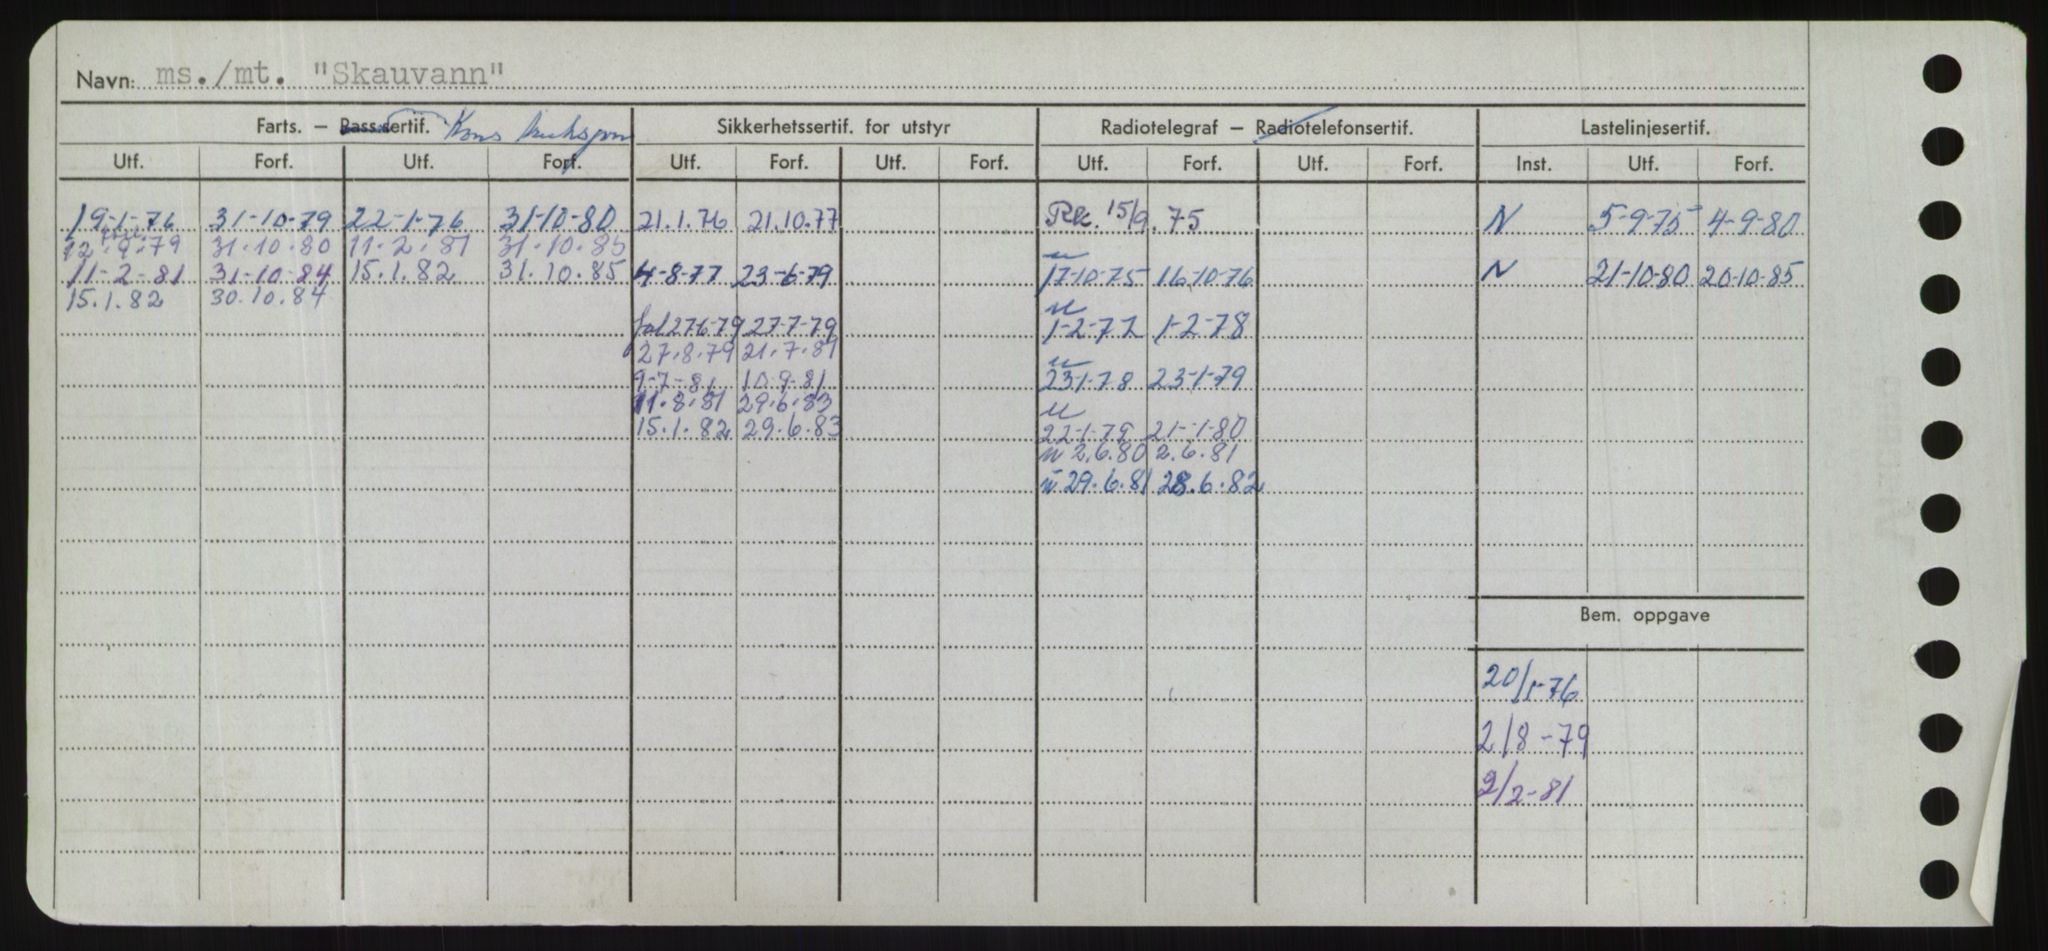 Navn: ms./mt. "Skauvann"
Farts. – Passsertif. Kons Sikkerhetssertif. for utstyr Radiotelegraf – Radiotelefonsertif. Lastelinjesertif.
Utf. Forf. Utf. Forf. Utf. Forf. Utf. Forf. Utf. Forf. Utf. Forf. Inst. Utf. Forf.
19-1-76 31-10-79 22-1-76 31-10-80 21.1.76 21.10.77 Rk. 15/9.75 N 5-9-75 4-9-80
12.9.79 31.10.80 11.2.81 31.10.85
11-2-81 31-10-84 15.1.82 31.10.85 4-8-77 23-6-79 17-10-75 16-10-76 N 21-10-80 20-10-85
15.1.82 30.10.84
27-6-79 27-7-79 1-2-77 1-2-78
27.8.79 21.7.81
9-7-81 10.9.81 23-1-78 23-1-79
11.8.81 29.6.83
15.1.82 29.6.83 22-1-79 21-1-80
2.6.80 2.6.81
29.6.81 28.6.82
Bem. oppgave
20/1-76
2/8-79
9/2-81